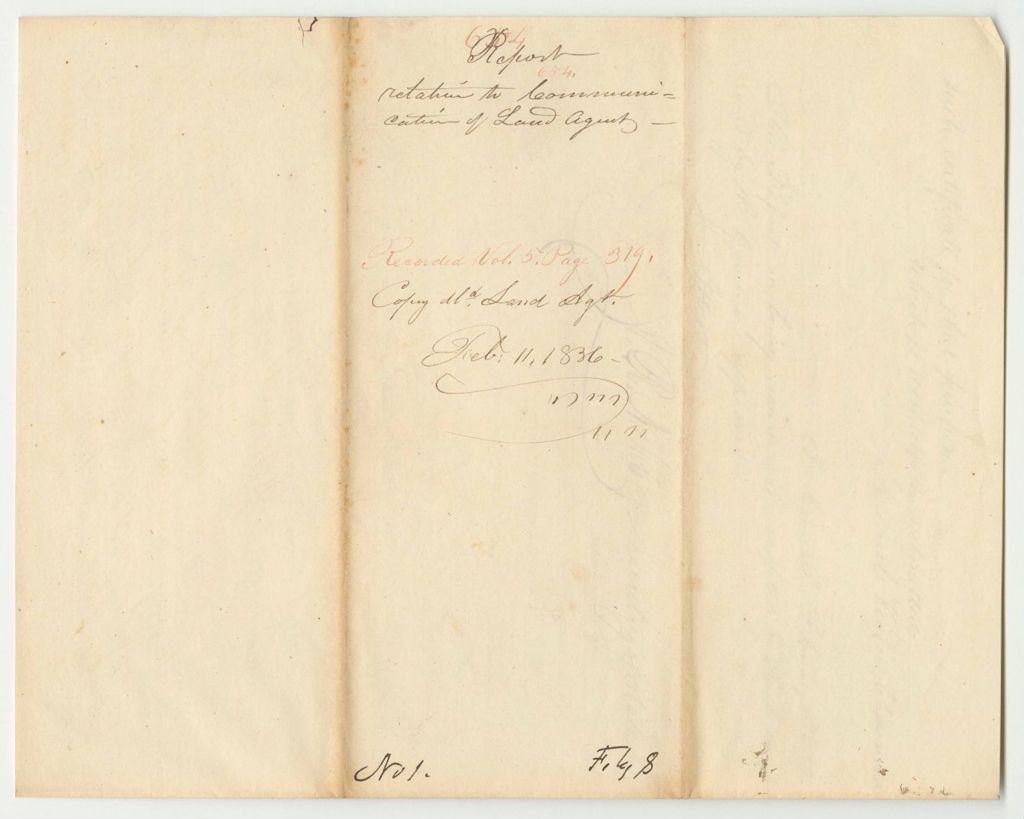 Report
654.
relative to Communi=
cation of Land Agent —
Recorded Vol. 5. Page 319.
Copy dld. Land Agt.
Feb. 11, 1836 —
No 1.